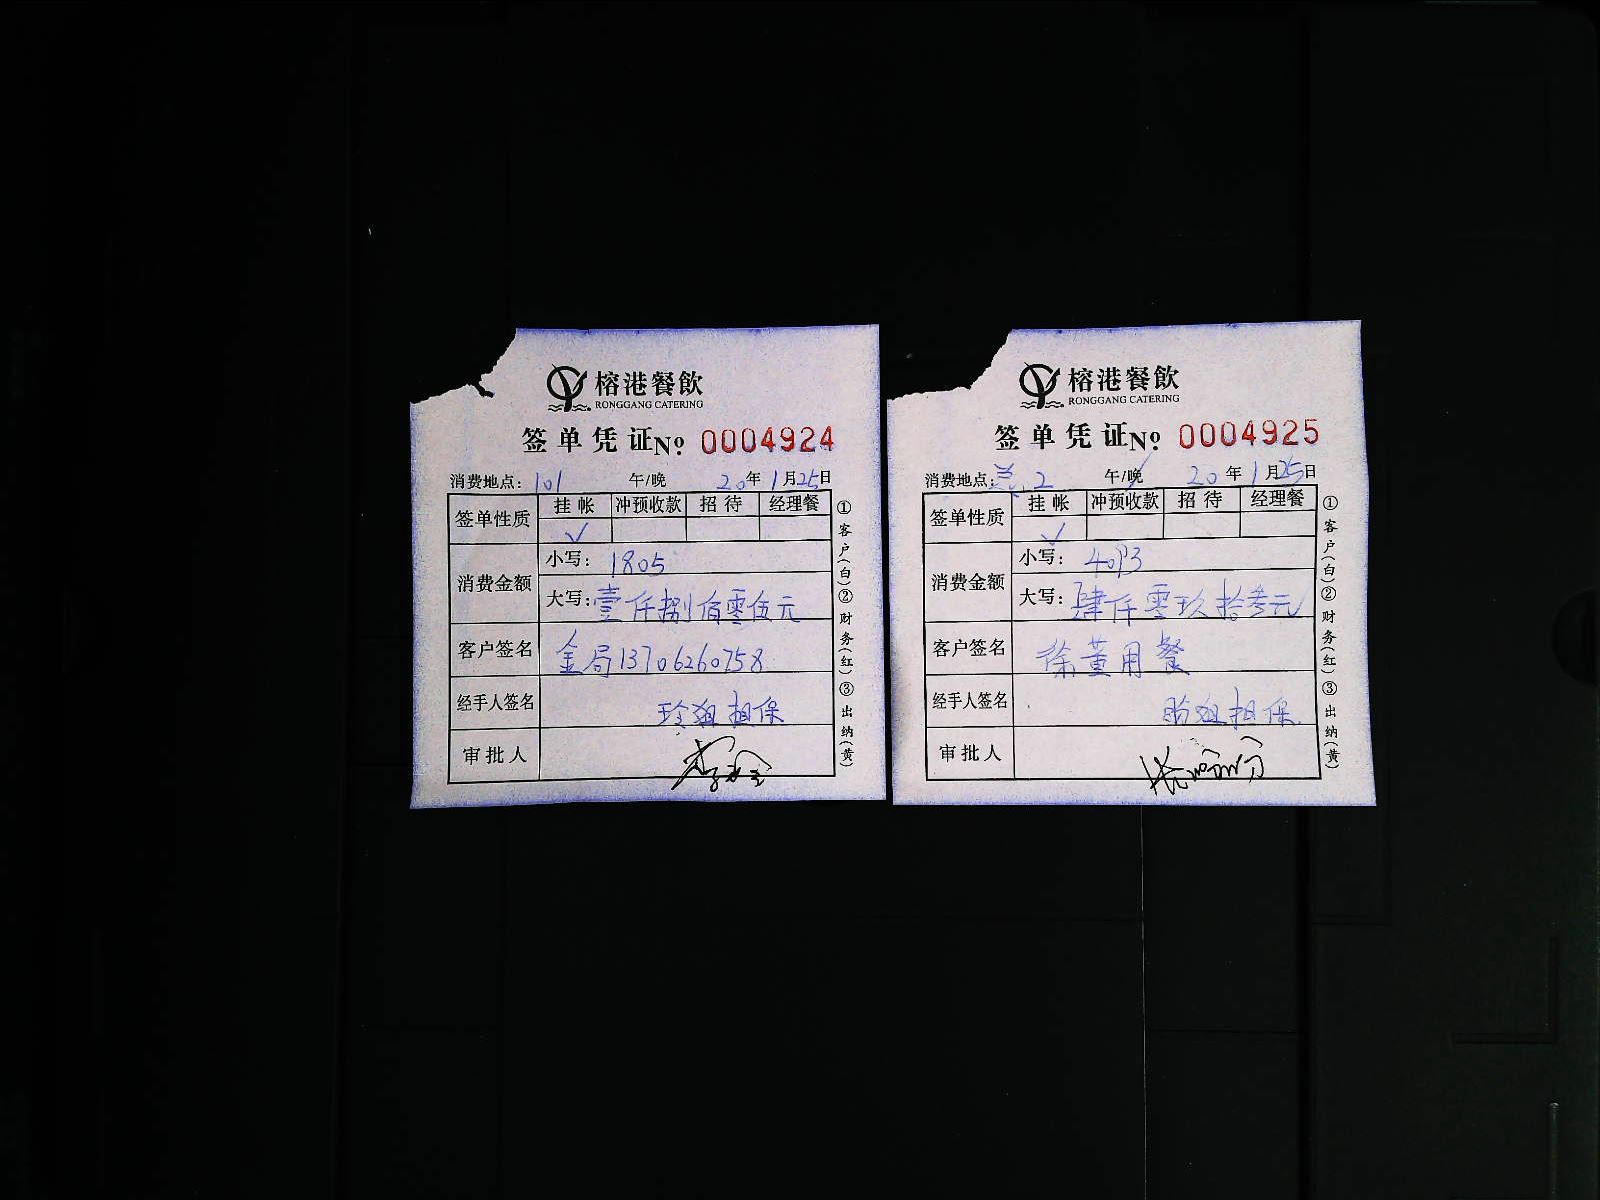 榕港餐飲
RONGGANG CATERING
签单凭证№ 0004924
消费地点：101 午/晚 20年1月25日
签单性质 挂帐 冲预收款 招待 经理餐
✓
消费金额 小写：1805
大写：壹仟捌佰零伍元
客户签名 金局13706260758
经手人签名 玲姐担保
审批人
①客户(白)②财务(红)③出纳(黄)
榕港餐飲
RONGGANG CATERING
签单凭证№ 0004925
消费地点：兰2 午/晚 20年1月25日
签单性质 挂帐 冲预收款 招待 经理餐
✓
消费金额 小写：4093
大写：肆仟零玖拾叁元
客户签名 徐董用餐
经手人签名 盼姐担保
审批人
①客户(白)②财务(红)③出纳(黄)